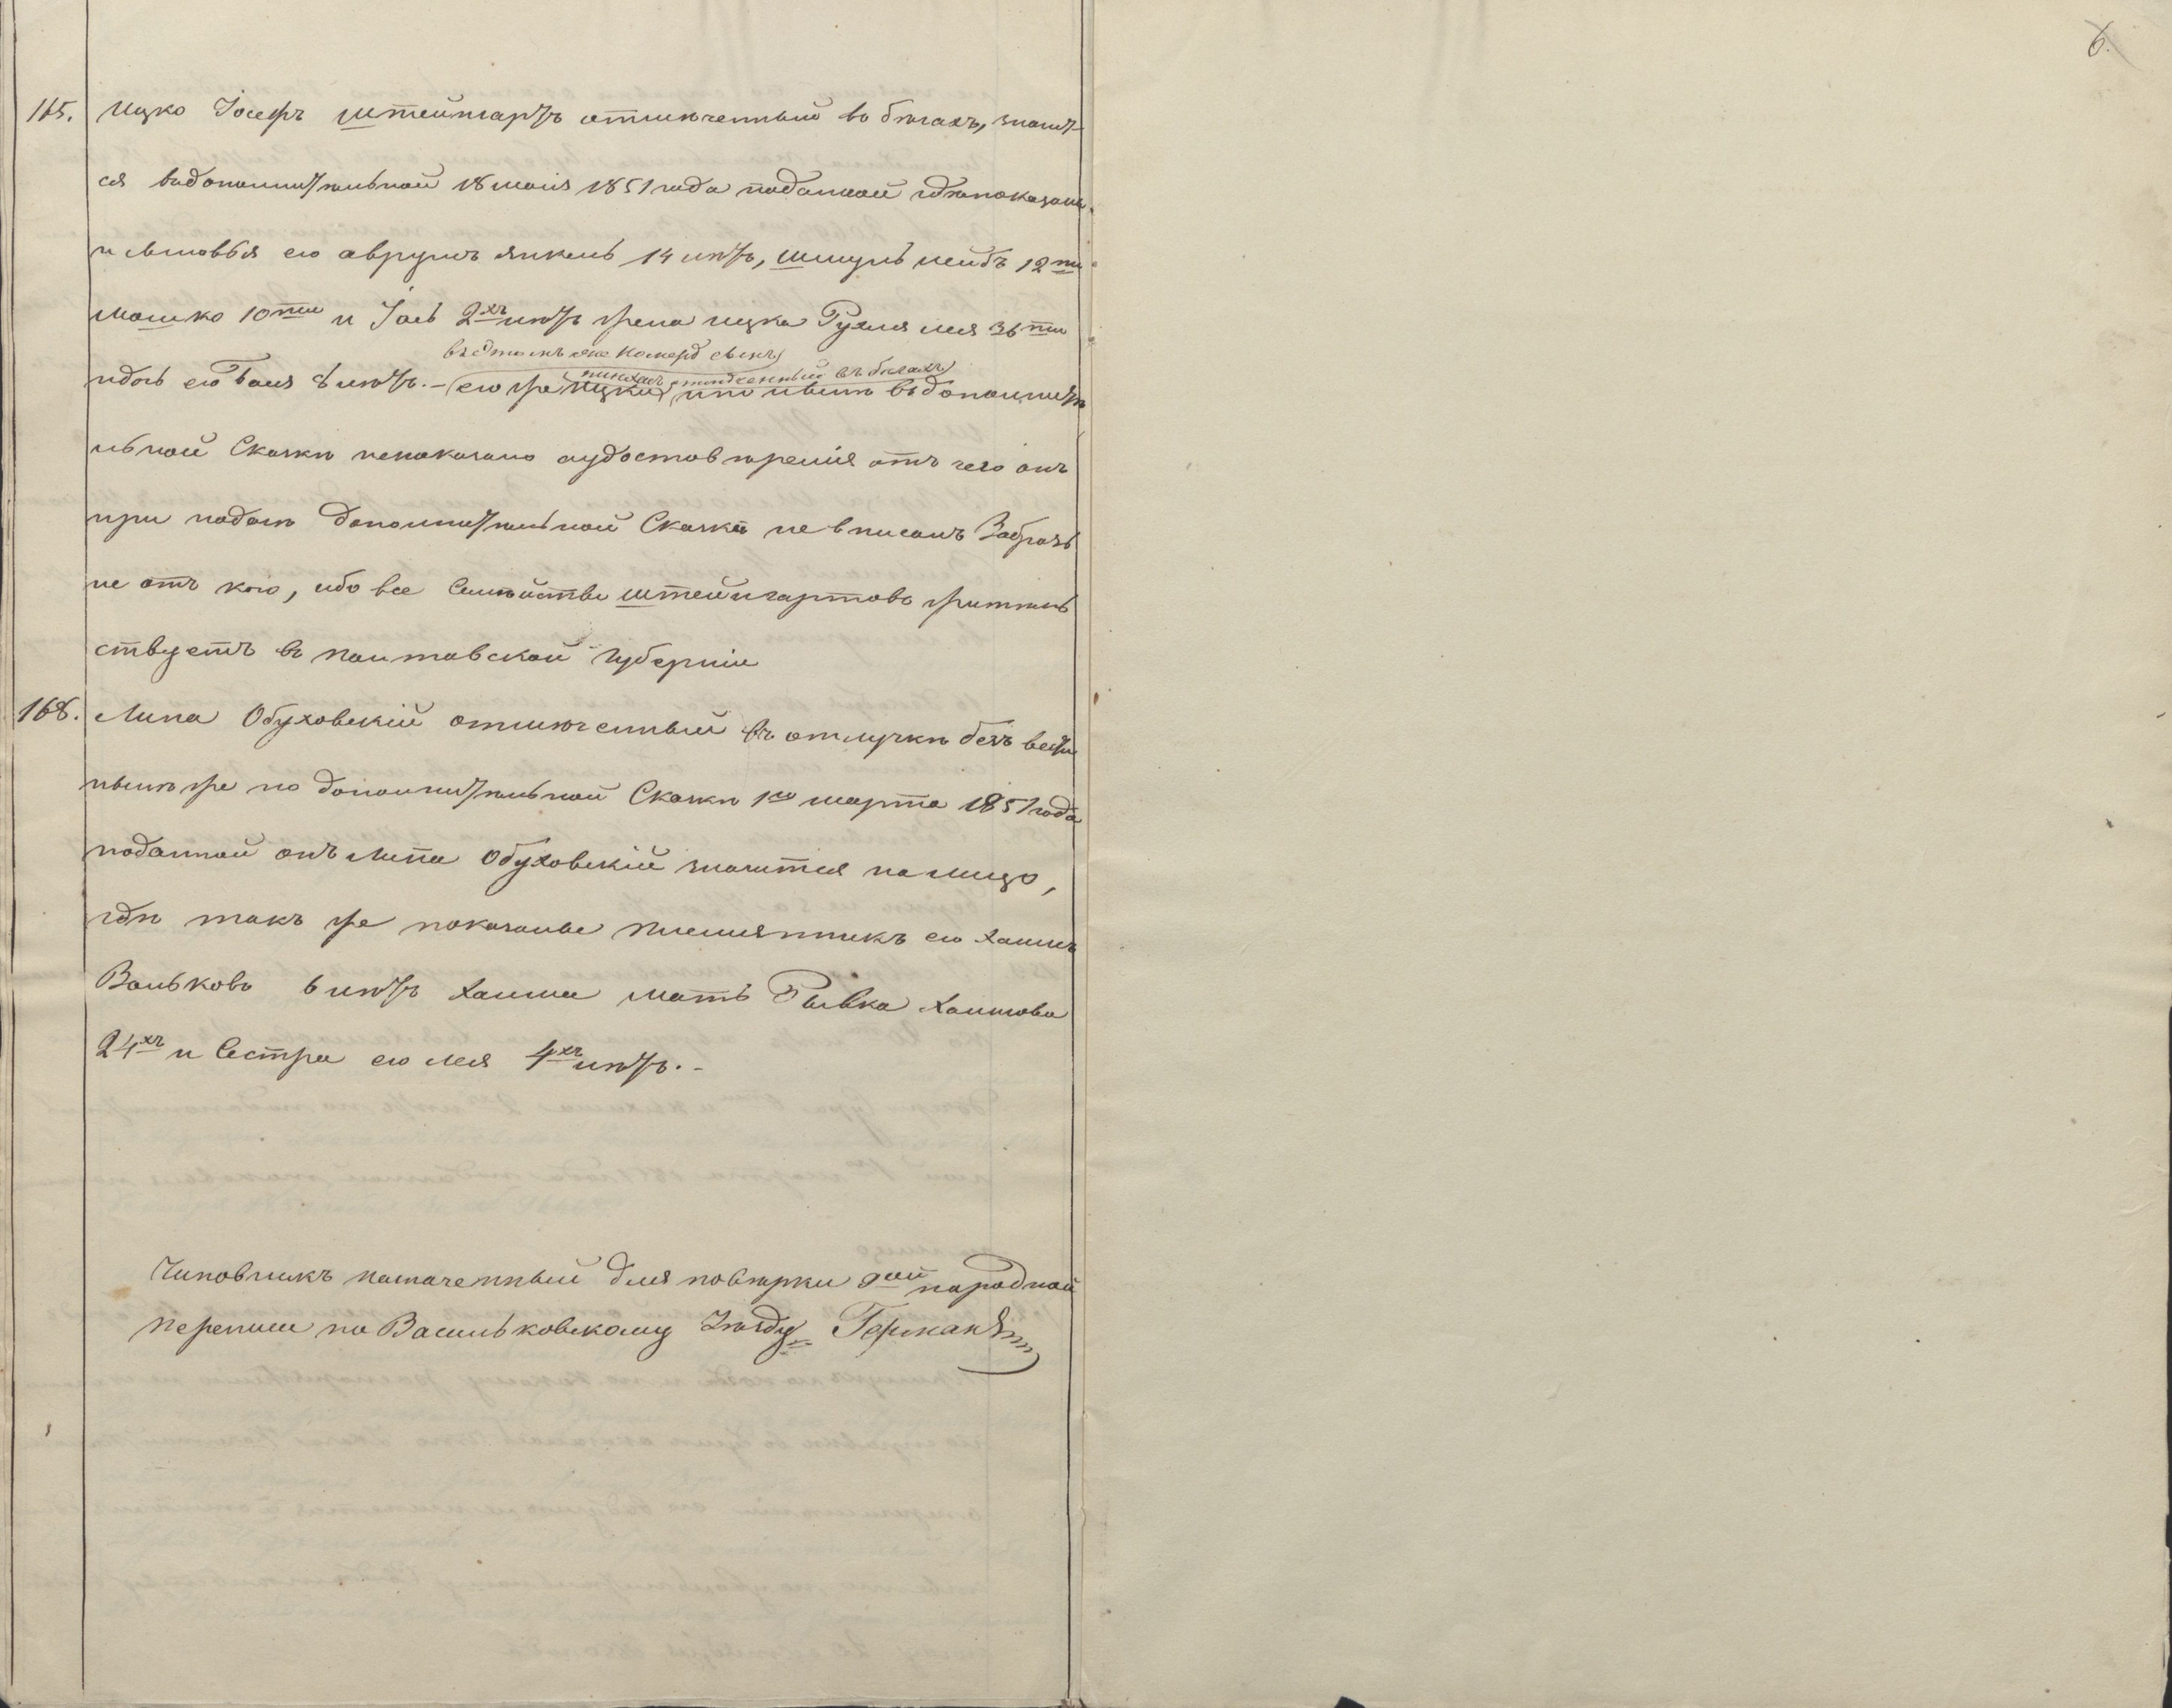 6.
165. Ицко Іосефъ Штейнгартъ отмѣченный въ бѣгахъ, значит-
ся вдополнительной 18 маія 1851 года поданной гдѣ показаны
и сыновья его Аврумъ Янкель 14 лѣтъ, Шмуль Лейбъ 12ти
Мошко 10ти и Іось 2хъ лѣтъ жена Ицка Рухля Лея 36ти
въ этомъ же номерѣ сынъ
Пинхасъ отмѣченный въ бѣгахъ
идочь его Бася 8 лѣтъ. – его же Ицка нынѣ вдополните
льной Сказкѣ непоказано аудостоверенія отъ чего онъ
при подачѣ дополнительной Сказкѣ не вписанъ Забрать
не отъ кого, ибо все Семѣйство Штейнгартовъ жительс
ствуетъ въ Полтавской Губерніи
168. Липа Обуховскій отмѣченный въ отлучкѣ безъ вести
нынѣ же по дополнительной Сказкѣ 1го марта 1851 года
поданной онъ Липа Обуховскій значится на лицо,
гдѣ такъ же показаны племянникъ его Хаимъ
Вольковъ 6 лѣтъ Хаима мать Рывка Хаимова
24хъ и Сестра его Лея 4хъ лѣтъ. –
Чиновникъ назначенный для повѣрки 9ой народной
переписи по Васильковскому Уѣзду